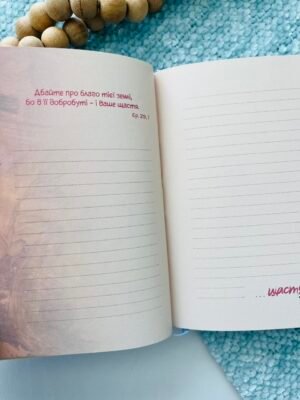 Дбайте про благо тієї землі,
бо в її добробуті – і ваше щастя.
Єр. 29, 7